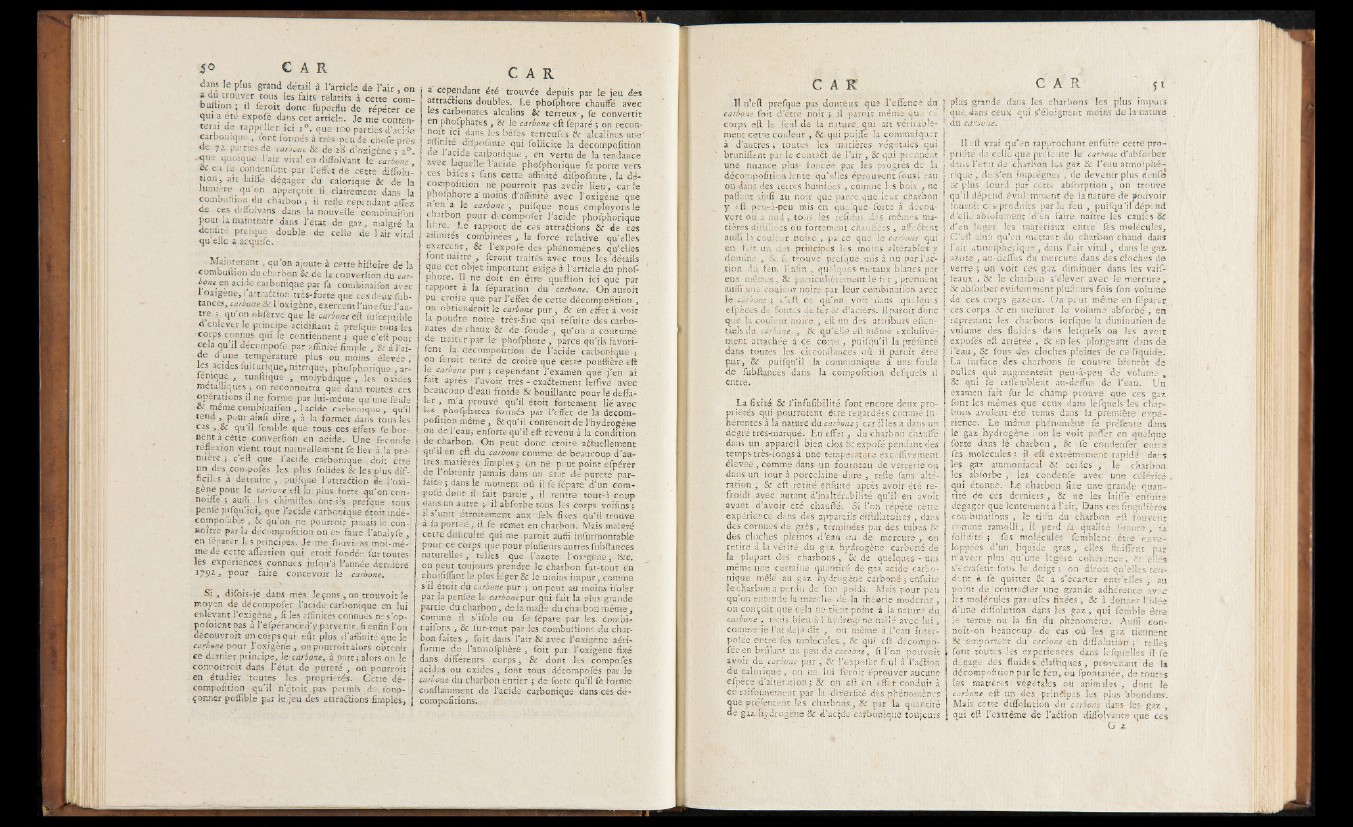 50 C A R
dans le plus grand détail à l'article de l'air, on
a dû trouver tous les faits relatifs à cette com-
bustion ; il seroit donc superflu de répéter ce
qui a été exposé dans cet article. Je me conten-
terai de rappeller ici 1°. que 100 parties d'acide
carbonique, sont formés à très-peu de chose près
de 72 parties de carbone & de 28 d'oxigène ; 2°.
que quoique l'air vital en dissolvant le carbone,
& en se condensant par l'effet de cette dissolu-
tion, ait laissé dégager du calorique & de la
lumière qu'on apperçoit si clairement dans la
combustion du charbon ; il reste cependant assez
de ces dissolvans dans la nouvelle combinaison
pour la maintenir dans l'état de gaz, malgré la
densité presque double de celle de l'air vital
qu'elle a acquise.
Maintenant, qu'on ajoute à cette histoire de la
combustion du charbon & de la conversion du car-
bone en acide carbonique par sa combinaison avec
l'oxigène, l'attraction très-forte que ces deux sub-
stances, carbone & l'oxigène, exercent l'une sur l'au-
tre ; qu'on observe que le carbone est susceptible
d'enlever le principe acidifiant à presque tous les
corps connus qui le contiennent ; que c'est pour
cela qu'il décompose par affinité simple, & à l'ai-
de d'une température plus ou moins élevée,
les acides sulfurique, nitrique, phosphorique, ar-
sénique, tunstique, molybdique, les oxides
métalliques ; on reconnoitra que dans toutes ces
opérations il ne forme par lui-même qu'une seule
& même combinaison, l'acide carbonique, qu'il
tend, pour ainsi dire, à la former dans tous les
cas, & qu'il semble que tous ces effets se bor-
nent à cette conversion en acide. Une seconde
réflexion vient tout naturellement se lier à la pre-
mière ; c'est que l'acide carbonique doit être
un des composés les plus solides & les plus dif-
ficiles à détruire, puisque l'attraction de l'oxi-
gène pour le carbone est la plus forte qu'on con-
noisse ; aussi les chimistes ont-ils presque tous
pensé jusqu'ici, que l'acide carbonique étoit indé-
composable, & qu'on ne pourroit jamais le con-
noître par la décomposition ou en faire l'analyse,
en séparer les principes. Je me souviens moi-mê-
me de cette assertion qui étoit fondée sur toutes
les expériences connues jusqu'à l'année dernière
1792, pour faire concevoir le carbone.
Si, disois-je dans mes leçons, on trouvoit le
moyen de décomposer l'acide carbonique en lui
enlevant l'oxigène, si les affinités connues ne s'op-
posoient pas à l'espérance d'y parvenir, si enfin l'on
découvroit un corps qui eût plus d'affinité que le
carbone pour l'oxigène, on pourroit alors obtenir
ce dernier principe, le carbone, à part ; alors on le
connoîtroit dans l'état de pureté, on pourroit
en étudier toutes les propriétés. Cette dé-
composition qu'il n'étoit pas permis de soup-
çonner possible par le jeu des attractions simples,
C A R
a cependant été trouvée depuis par le jeu des
attractions doubles. Le phosphore chauffé avec
les carbonates alcalins & terreux, se convertit
en phosphates, & le carbone est séparé ; on recon-
noît ici dans les bases terreuses & alcalines une
affinité disposante qui sollicite la décomposition
de l'acide carbonique, en vertu de la tendance
avec laquelle l'acide phosphorique se porte vers
ces bases ; sans cette affinité disposante, la dé-
composition ne pourroit pas avoir lieu, car le
phosphore a moins d'affinité avec l'oxigène que
n'en a le carbone, puisque nous employons le
charbon pour décomposer l'acide phosphorique
libre. Le rapport de ces attractions & de ces
affinités combinées, la force relative qu'elles
exercent, & l'exposé des phénomènes qu'elles
font naître, seront traités avec tous les détails
que cet objet important exige à l'article du phos-
phore. Il ne doit en être question ici que par
rapport à la séparation du carbone. On auroit
pu croire que par l'effet de cette décomposition,
on obtiendroit le carbone pur, & en effet à voir
la poudre noire très-fine qui résulte des carbo-
nates de chaux & de soude, qu'on a coutume
de traiter par le phosphore, parce qu'ils favori-
sent la décomposition de l'acide carbonique ;
on seroit tenté de croire que cette poussière est
le carbone pur ; cependant l'examen que j'en ai
fait après l'avoir très-exactement lessivé avec
beaucoup d'eau froide & bouillante pour le dessa-
ler, m'a prouvé qu'il étoit fortement lié avec
les phosphates formés par l'effet de la décom-
position même, & qu'il contenoit de l'hydrogène
ou de l'eau, ensorte qu'il est revenu à la condition
de charbon. On peut donc croire actuellement
qu'il en est du carbone comme de beaucoup d'au-
tres matières simples ; on ne peut point espérer
de l'obtenir jamais dans un état de pureté par-
faite ; dans le moment où il se sépare d'un com-
posé dont il fait partie, il rentre tout-à coup
dans un autre ; il absorbe tous les corps voisins ;
il s'unit étroitement aux sels fixes qu'il trouve
à sa portée, il se remet en charbon. Mais malgré
cette difficulté qui me paroît aussi insurmontable
pour ce corps que pour plusieurs autres substances
naturelles, telles que l'azote l'oxigène, &c.
on peut toujours prendre le charbon sur-tout en
choisissant le plus léger & le moins impur, comme
s'il étoit du carbone pur ; on peut au moins isoler
par la pensée le carbone pur qui fait la plus grande
partie du charbon, de la masse du charbon même,
comme il s'isole ou se sépare par les combi-
naisons, & sur-tout par les combustions du char-
bon faites, soit dans l'air & avec l'oxigène aéri-
forme de l'atmosphère, soit par l'oxigène fixé
dans différents corps, & dont les composés
acides ou oxides, sont tous décomposés par le
carbone du charbon entier ; de sorte qu'il se forme
constamment de l'acide carbonique dans ces dé-
compositions.
C A R
Il n'est presque pas douteux que l'essence du
carbone soit d'être noir ; il paroît même que ce
corps est le seul de la nature qui ait véritable-
ment cette couleur, & qui puisse la communiquer
à d'autres ; toutes les matières végétales qui
brunissent par le contact de l'air, & qui prennent
une nuance plus foncée par les progrès de la
décomposition lente qu'elles éprouvent sous l'eau
ou dans des terres humides, comme les bois, ne
passent ainsi au noir que parce que leur charbon
y est peu-à-peu mis en quelque sorte à décou-
vert ou à nud ; tous les résidus des mêmes ma-
tières distillées ou fortement chauffées, affectent
aussi la couleur noire, parce que le carbone qui
en fait un des principes les moins altérables y
domine, & se trouve presque mis à nu par l'ac-
tion du feu. Enfin, quelques métaux blancs par
eux-mêmes, & particulièrement le fer, prennent
aussi une couleur noire par leur combinaison avec
le carbone ; c'est ce qu'on voit dans quelques
espèces de fontes de fer & d'aciers. Il paroît donc
que la couleur noire, est un des attributs essen-
tiels du carbone, & qu'elle est même exclusive-
ment attachée à ce corps, puisqu'il la présente
dans toutes les circonstances où il paroît être
pur, & puisqu'il la communique à une foule
de substances dans la composition desquels il
entre.
La fixité & l'infusibilité sont encore deux pro-
priétés qui pourroient être regardées comme in-
hérentes à la nature du carbone ; car il les a dans un
degré très-marqué. En effet, du charbon chauffé
dans un appareil bien clos & exposé pendant des
temps très-longs à une température excessivement
élevée, comme dans un fourneau de verrerie ou
dans un four à porcelaine dure, reste sans alté-
ration, & est retiré ensuite après avoir été re-
froidi avec autant d'inaltérabilité qu'il en avoit
avant d'avoir été chauffé. Si l'on répète cette
expérience dans des appareils distillatoires, dans
des cornues de grès, terminées par des tubes &
des cloches pleines d'eau ou de mercure, on
retire à la vérité du gaz hydrogène carboné de
la plupart des charbons, & de quelques-uns
même une certaine quantité de gaz acide carbo-
nique mêlé au gaz hydrogène carboné ; ensuite
le charbon a perdu de son poids. Mais pour peu
qu'on entende la marche de la théorie moderne,
on conçoit que cela ne tient point à la nature du
carbone, mais bien à l'hydrogène mêlé avec lui,
comme je l'ai déjà dit, ou même à l'eau inter-
posée entre ses molécules, & qui est décompo-
sée en brûlant un peu de carbone, si l'on pouvoit
avoir du carbone pur, & l'exposer seul à l'action
du calorique, on ne lui feroit éprouver aucune
espèce d'altération ; & on est en effet conduit à
ce raisonnement par la diversité des phénomènes
que présentent les charbons, & par la quantité
de gaz hydrogène & d'acide carbonique toujours
C A R 51
plus grande dans les charbons les plus impurs
que dans ceux qui s'éloignent moins de la nature
du carbone.
Il est vrai qu'en rapprochant ensuite cette pro-
priété de celle que présente le carbone d'absorber
dans l'état de charbon les gaz & l'eau atmosphé-
rique, de s'en imprégner, de devenir plus dense
& plus lourd par cette absorption, on trouve
qu'il dépend également de la nature de pouvoir
fournir ces produits par le feu, puisqu'il dépend
d'elle absolument d'en faire naître les causes &
d'en loger les matériaux entre ses molécules,
C'est ainsi qu'en mettant du charbon chaud dans
l'air atmosphérique, dans l'air vital, dans le gaz
azote, au-dessus du mercure dans des cloches de
verre ; on voit ces gaz diminuer dans les vais-
seaux, & le charbon s'élever avec le mercure,
& absorber évidemment plusieurs fois son volume
de ces corps gazeux. On peut même en séparer
ces corps & en mesurer le volume absorbé, en
reprenant les charbons lorsque la diminution de
volume des fluides dans lesquels on les avoit
exposés est arrêtée, & en les plongeant dans de
l'eau, & sous des cloches pleines de ce liquide.
La surface des charbons se couvre bientôt de
bulles qui augmentent peu-à-peu de volume,
& qui se rassemblent au-dessus de l'eau. Un
examen fait sur le champ prouve que ces gaz
sont les mêmes que ceux dans lesquels les char-
bons avoient été tenus dans la première expé-
rience. Le même phénomène se présente dans
le gaz hydrogène : on le voit passer en quelque
sorte dans le charbon, & se condenser entre
ses molécules : il est extrêmement rapide dans
les gaz ammoniacal & acides, le charbon
les absorbe, les condense avec une célérité
qui étonne. Le charbon fixe une grande quan-
tité de ces derniers, & ne les laisse ensuite
dégager que lentement à l'air. Dans ces singulières
combinaisons, le tissu du charbon est souvent
comme ramolli, il perd sa qualité sonore, sa
solidité ; ses molécules semblent être enve-
loppées d'un liquide gras, elles finissent par
n'avoir plus qu'une légère cohérence, & elles
s'écrasent sous le doigt ; on diroit qu'elles ten-
dent à se quitter & à s'écarter entr'elles, au
point de contracter une grande adhérence avec
les molécules gazeuses fixées, & à donner l'idée
d'une dissolution dans les gaz, qui semble être
le terme ou la fin du phénomène. Aussi con-
noît-on beaucoup de cas où les gaz tiennent
& emportent du carbone en dissolution ; telles
sont toutes les expériences dans lesquelles il se
dégage des fluides élastiques, provenant de la
décomposition par le feu, ou spontanée, de toutes
les matières végétales ou animales, dont le
carbone est un des principes les plus abondans.
Mais cette dissolution du carbone dans les gaz,
qui est l'extrême de l'action dissolvante que ces
G 2